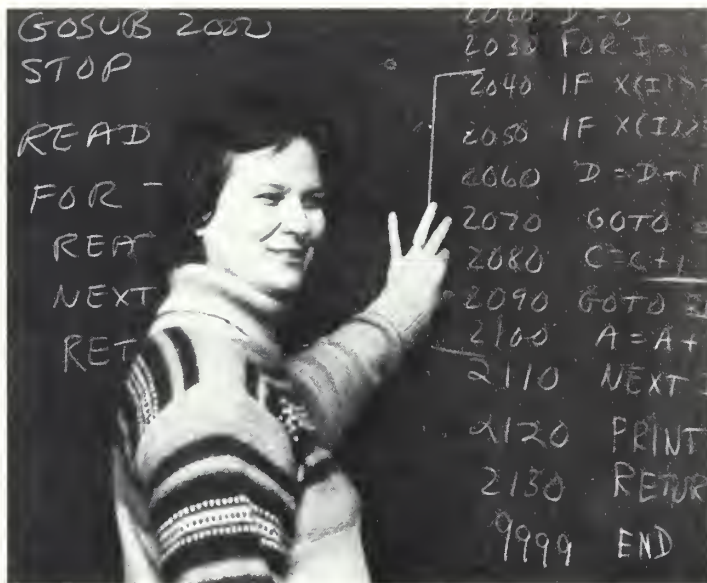 GOSUB 2000
STOP
READ
FOR -
REA
NEXT
RET
2020 D=0
2030 FOR I=
2040 IF X(I)
2050 IF X(I)
2060 D=D+1
2070 GOTO
2080 C=C+1
2090 GOTO
2100 A=A+
2110 NEXT
2120 PRINT
2130 RETUR
9999 END